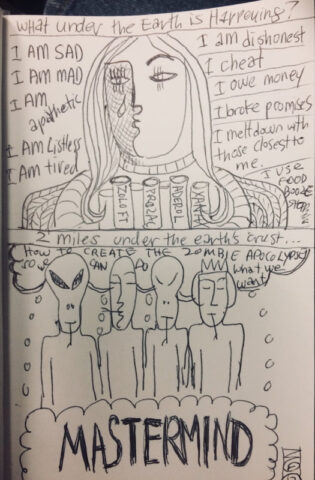 What under the Earth is Happening?
I AM SAD
I AM MAD
I AM
apathetic
I AM Listless
I AM tired
I am dishonest
I cheat
I owe money
I broke promises
I melt down with
those closest to
me.
I USE
FOOD
BOOZE
ZOLOFT
PROZAC
2 miles under the earth's crust...
HOW TO CREATE THE ZOMBIE APOCALYPSE
SO WE CAN DO
what we
want
MASTERMIND